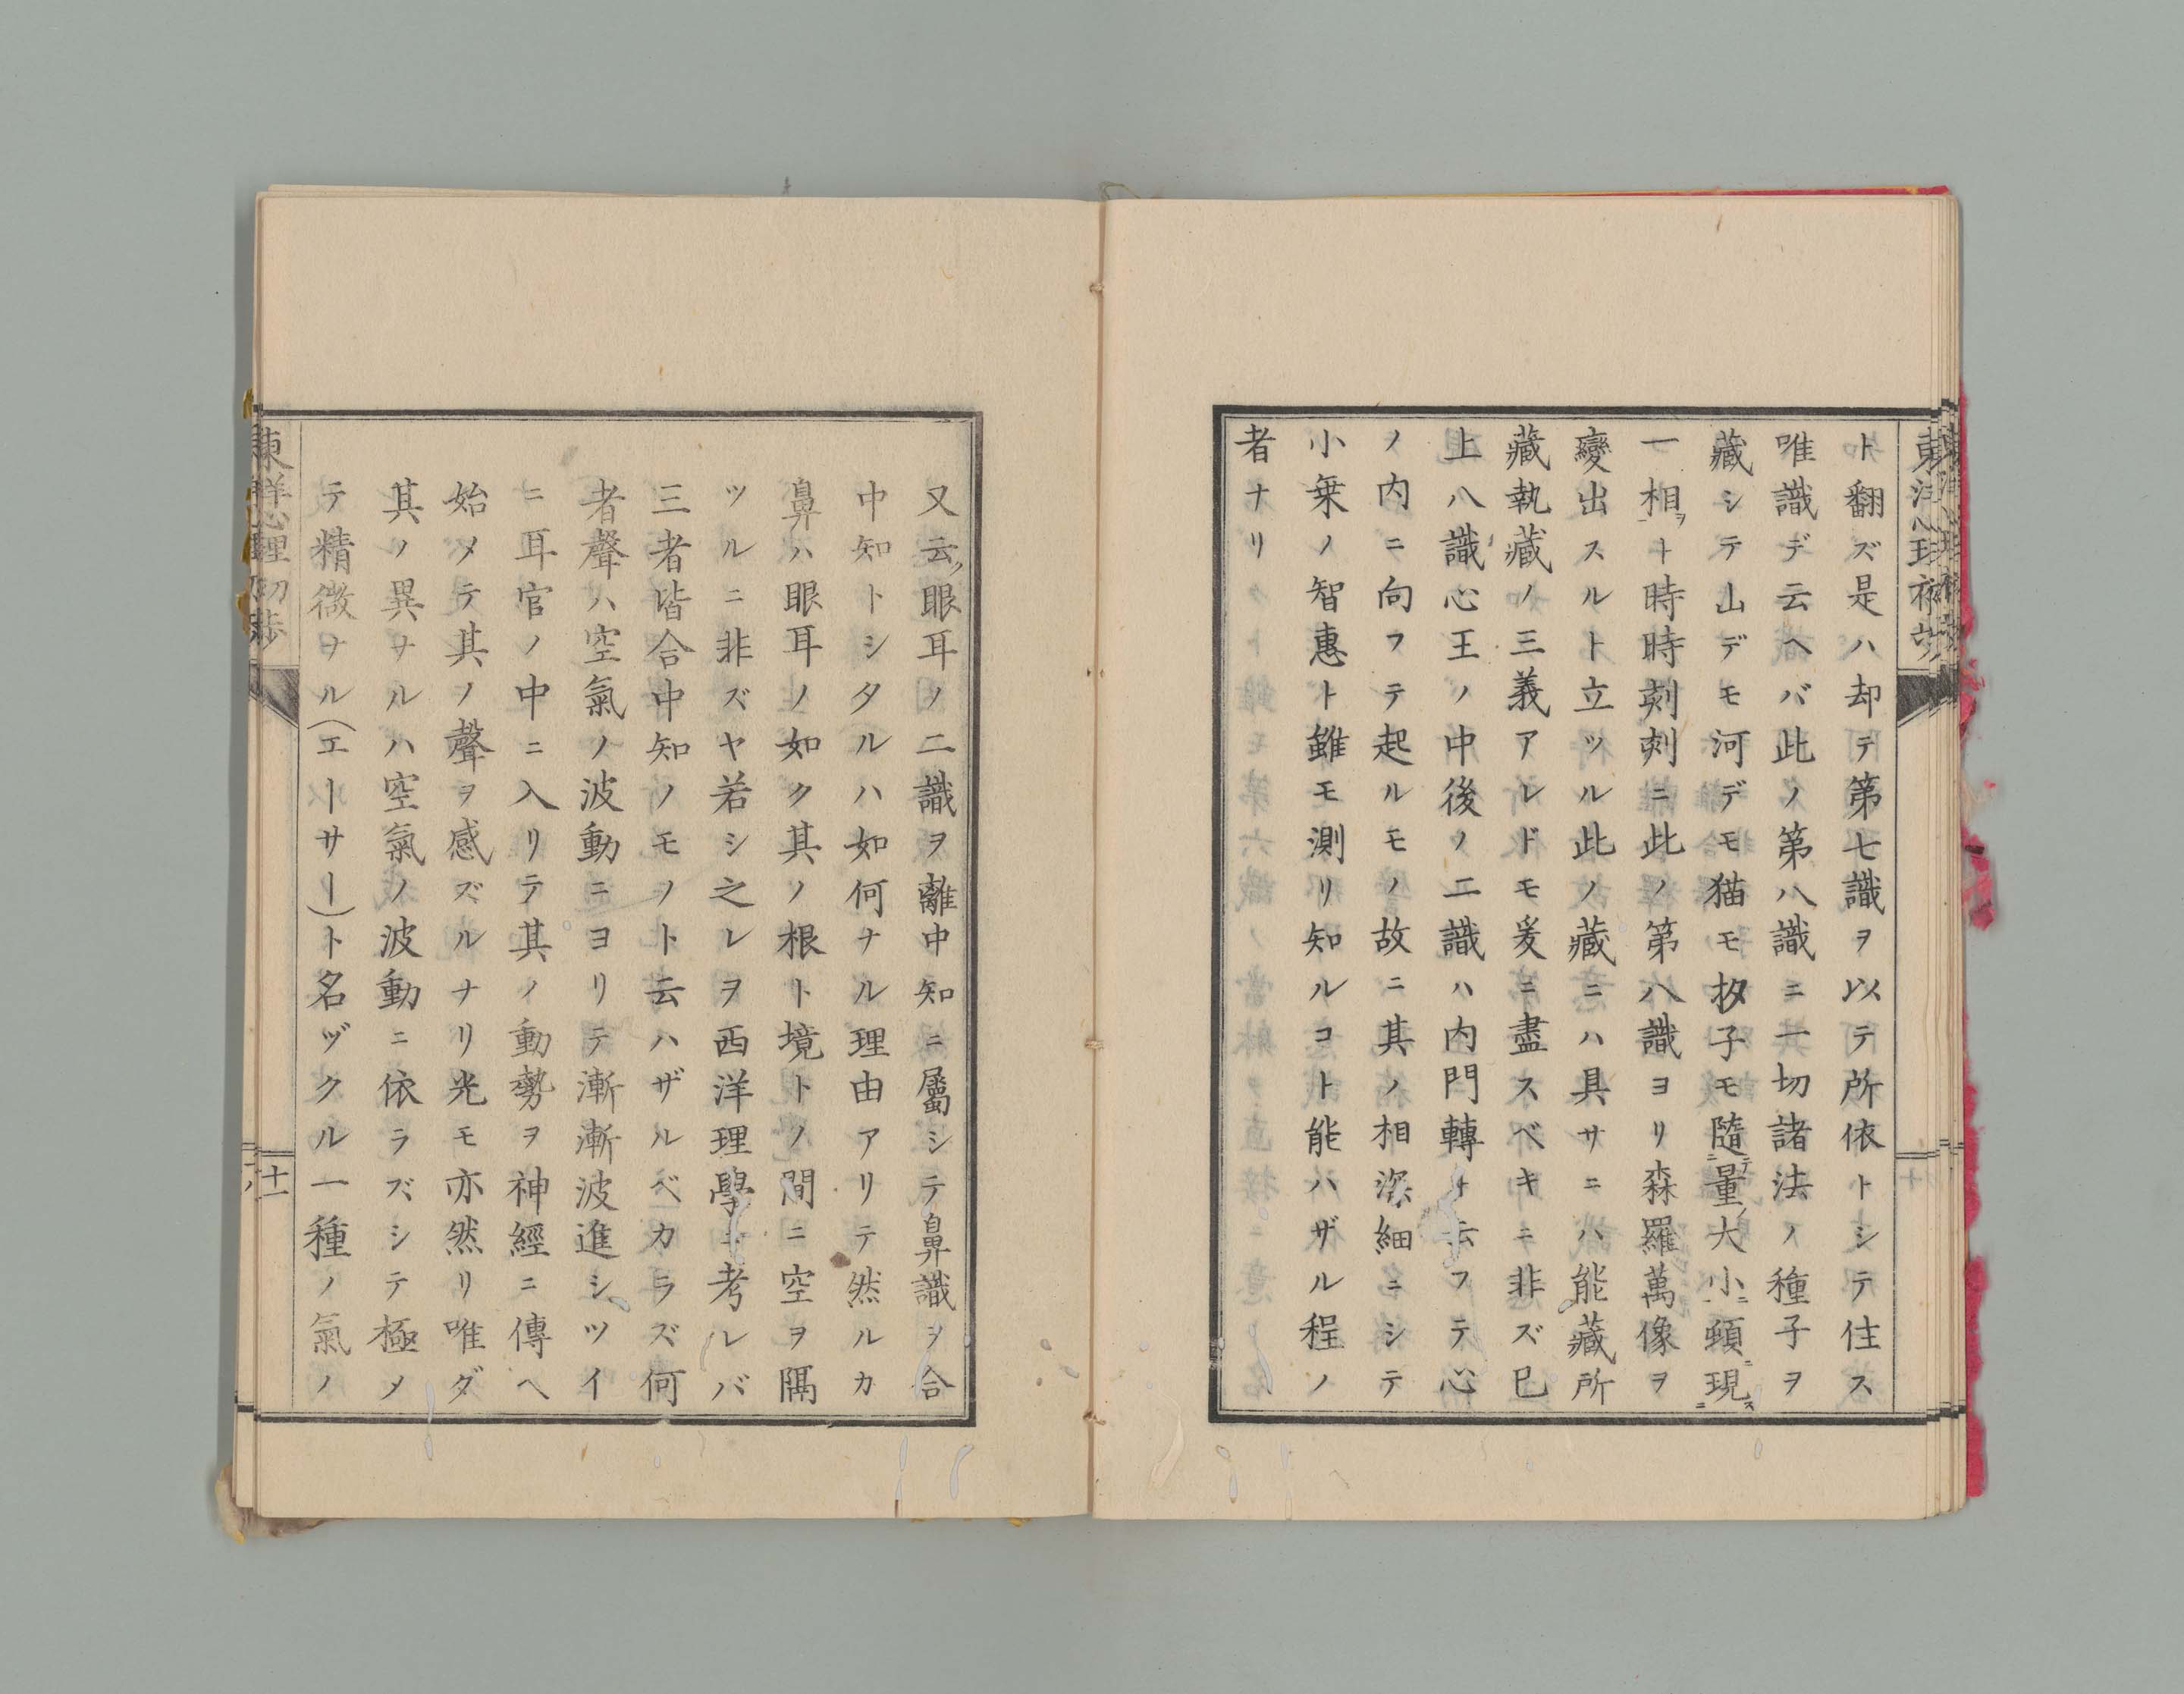 ト翻ズ是ハ却テ第七識ヲ以テ所依トシテ住ス
唯識デ云ヘバ此ノ第八識ニ一切諸法ノ種子ヲ
藏シテ山デモ河デモ猫モ杓子モ隨量大小頓現
一相ヲト時時刻刻ニ此ノ第八識ヨリ森羅萬像ヲ
變出スルト立ツル此ノ藏ニハ具サニハ能藏所
藏執藏ノ三義アレドモ爰ニ盡スベキニ非ズ已
上八識心王ノ中後ノ二識ハ内門轉ト云フテ心
ノ内ニ向フテ起ルモノ故ニ其ノ相深細ニシテ
小乗ノ智惠ト雖モ測リ知ルコト能ハザル程ノ
者ナリ
又云眼耳ノ二識ヲ離中知ニ屬シテ鼻識ヲ合
中知トシタルハ如何ナル理由アリテ然ルカ
鼻ハ眼耳ノ如ク其ノ根ト境トノ間ニ空ヲ隔
ツルニ非ズヤ若シ之レヲ西洋理學ニ考レバ
三者皆合中知ノモノト云ハザルベカラズ何
者聲ハ空氣ノ波動ニヨリテ漸漸波進シツイ
ニ耳官ノ中ニ入リテ其ノ動勢ヲ神經ニ傳ヘ
始メテ其ノ聲ヲ感ズルナリ光モ亦然リ唯ダ
其ノ異ナルハ空氣ノ波動ニ依ラズシテ極メ
テ精微ナル(エーサー)ト名ヅクル一種ノ氣ノ
東洋心理初歩
十一